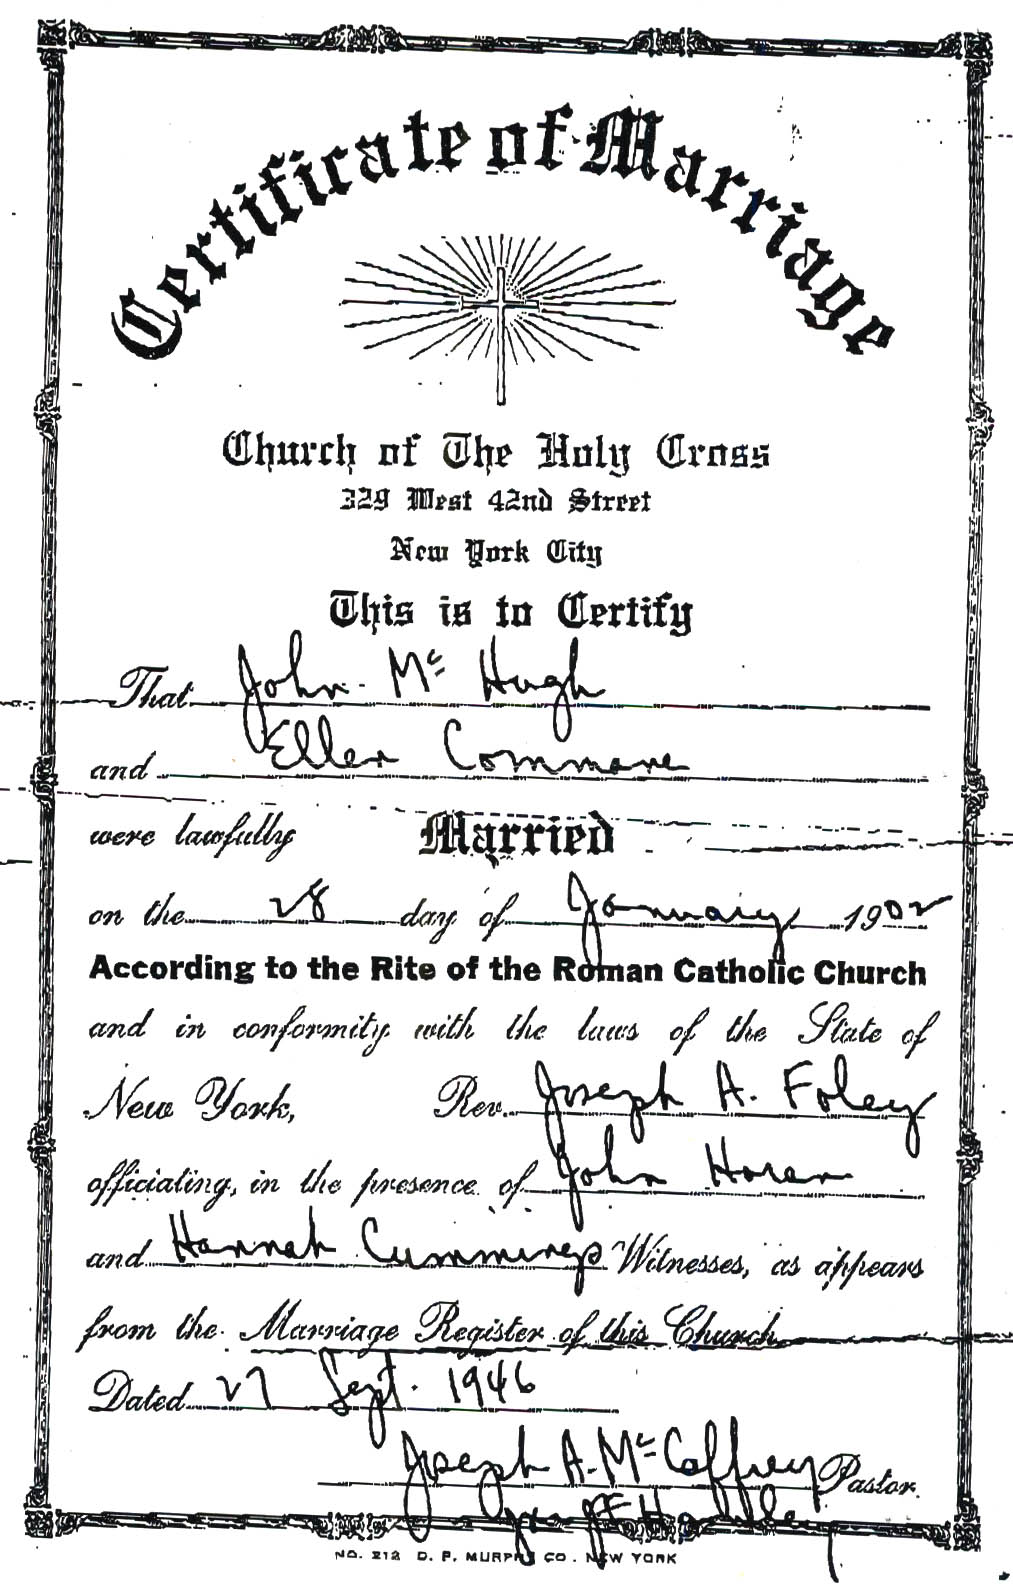 Certificate of Marriage
Church of The Holy Cross
329 West 42nd Street
New York City
This is to Certify
That John Mc Hugh
and Ellen Commane
were lawfully Married
on the 28 day of January 1902
According to the Rite of the Roman Catholic Church
and in conformity with the laws of the State of
New York, Rev. Joseph A. Foley
officiating, in the presence of John Horan
and Hannah Cummings Witnesses, as appears
from the Marriage Register of this Church
Dated 27 Sept. 1946
Joseph A. Mc Caffrey Pastor.
NO. 212 D. P. MURPHY CO. NEW YORK